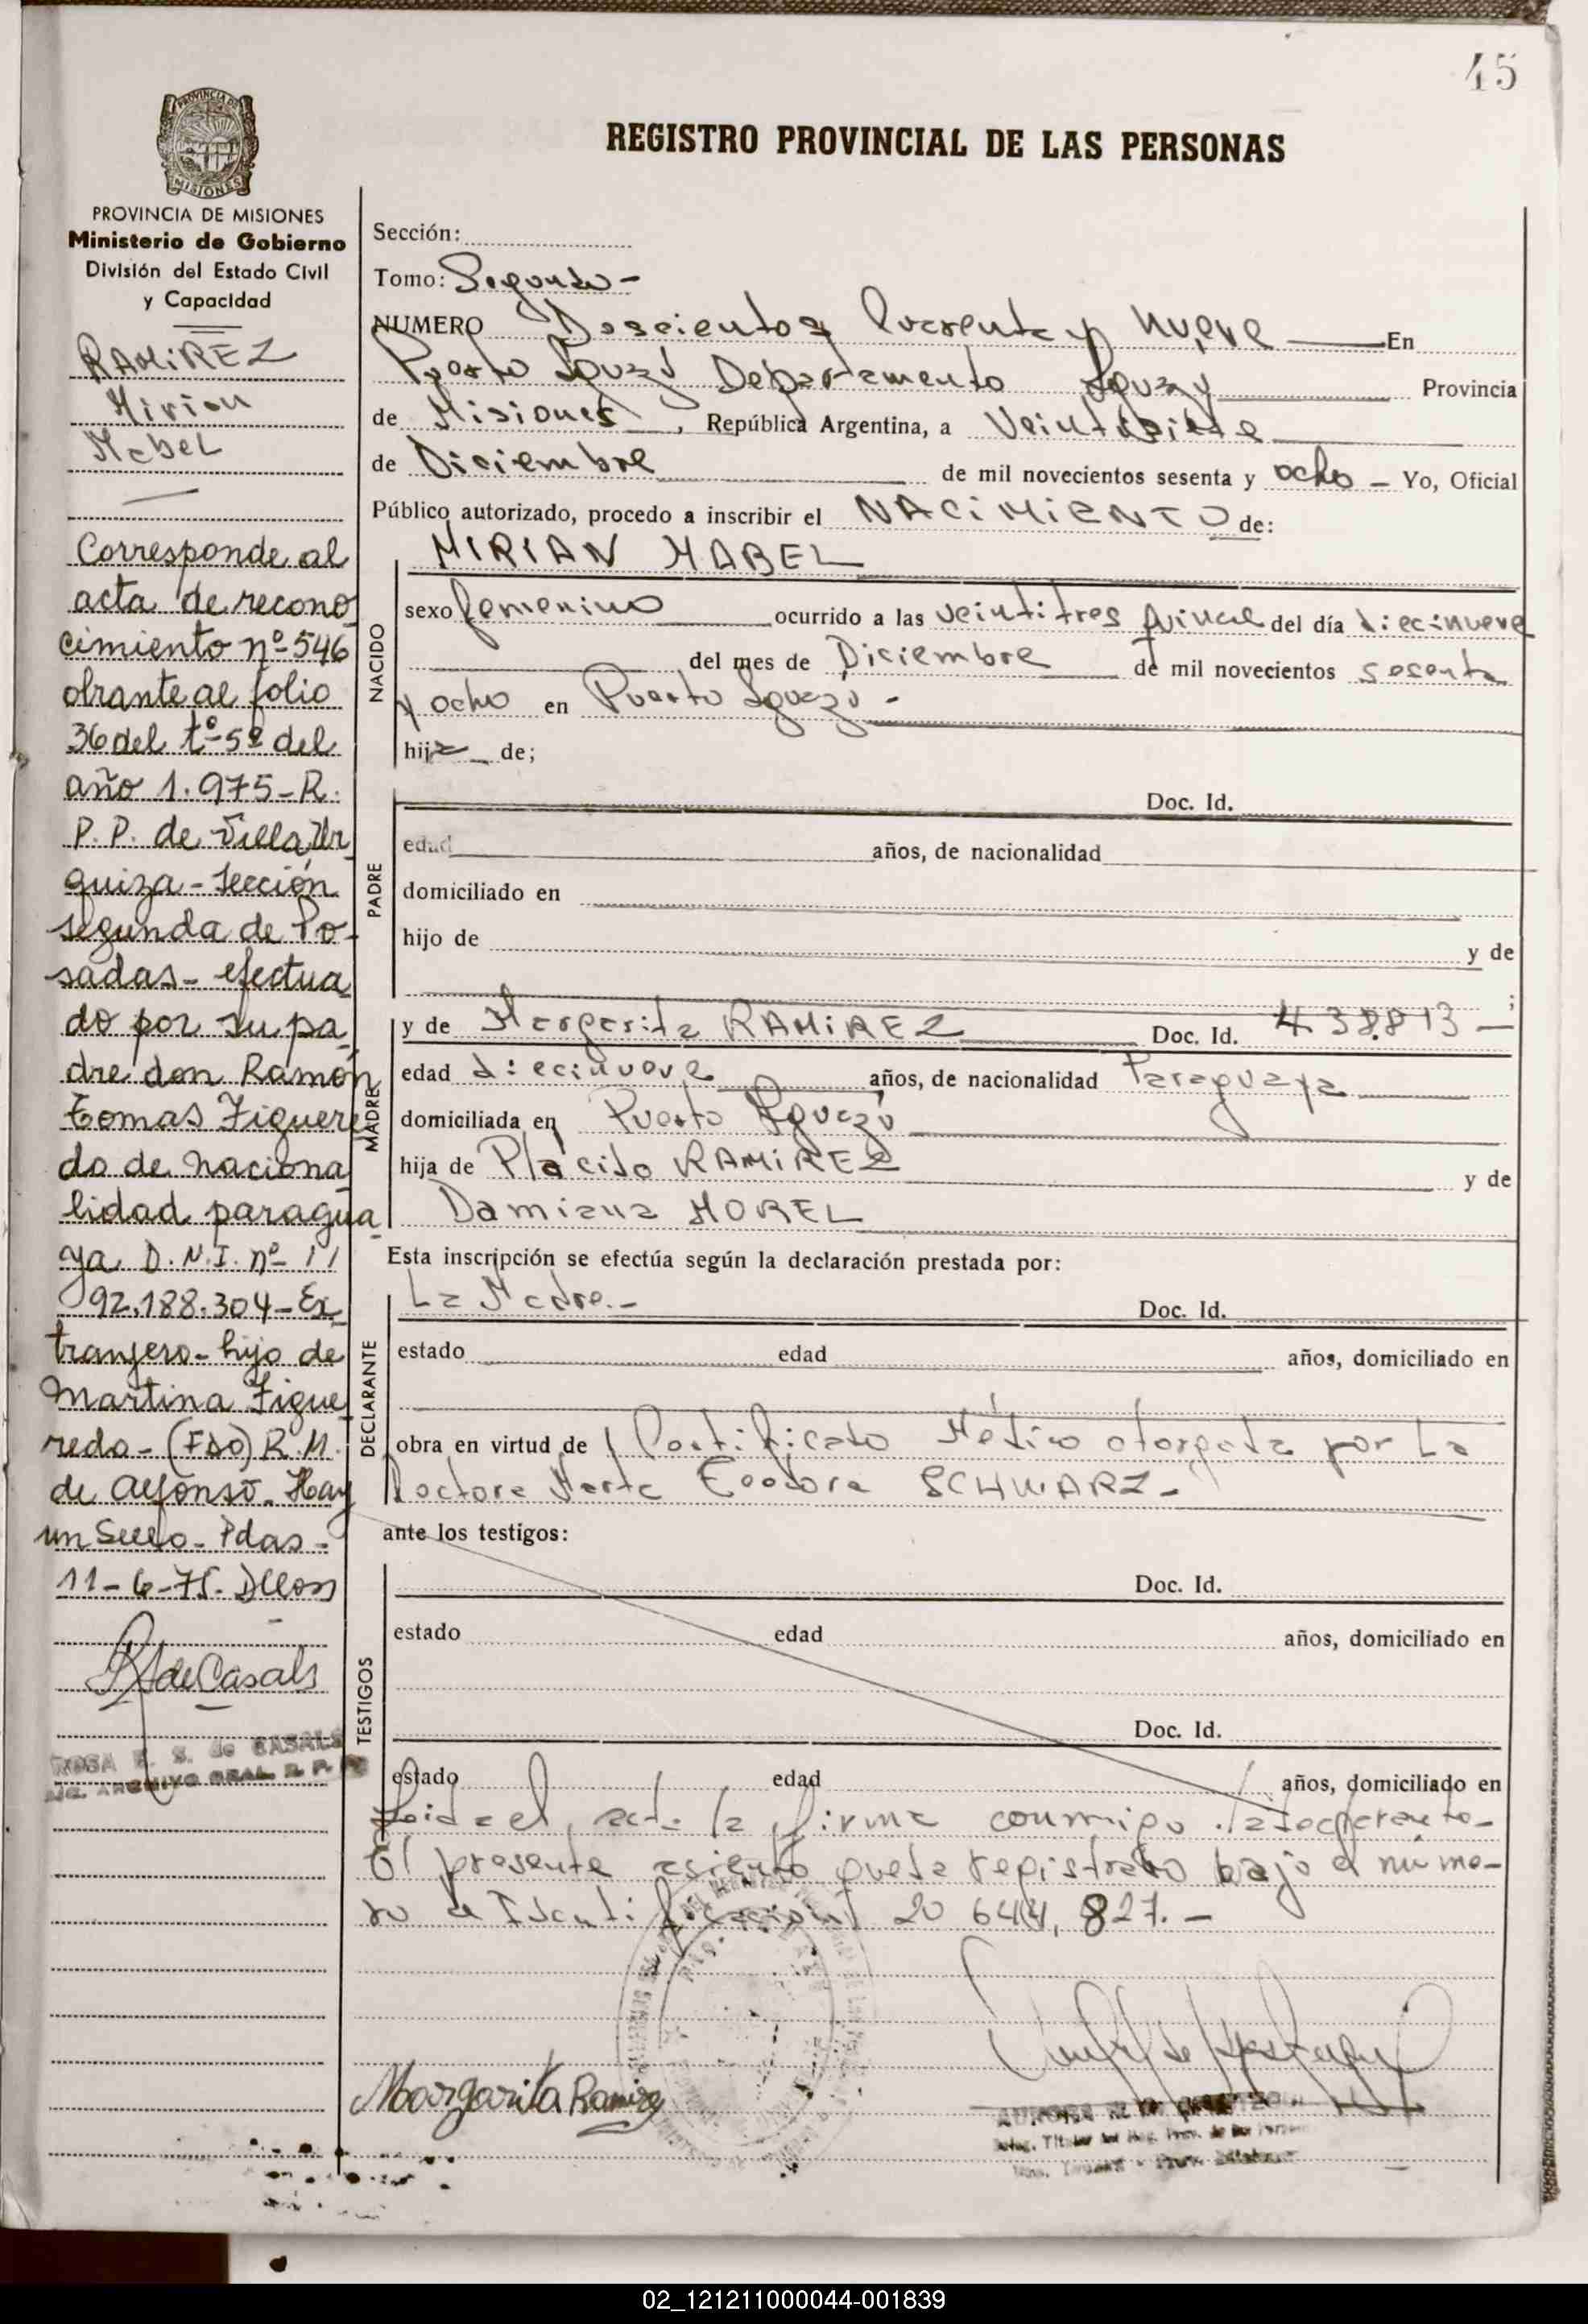 45
REGISTRO PROVINCIAL DE LAS PERSONAS
PROVINCIA DE MISIONES
PROVINCIA DE MISIONES
Ministerio de Gobierno
División del Estado Civil
y Capacidad
RAMIREZ
Mirian
Mabel
Corresponde al
acta de recono
cimiento nº 546
obrante al folio
36 del tº 5º del
año 1.975 - R.
P.P. de Villa Ur
quiza - Sección
segunda de Po-
sadas - efectua
do por su pa-
dre don Ramón
Tomas Figuere
do de naciona
lidad paragua
ya D.N.I. nº
92.188.304 - Ex-
tranjero - hijo de
Martina Figue
redo - (Fdo) R.M.
de Alfonso. Hay
un Sello - Pdas -
11-6-75.
R S de Casals
ROSA E. S. de CASALS
ARCHIVO GRAL. R. P.
Sección:
Tomo: Segundo -
NUMERO Doscientos Cuarenta y Nueve En
Puerto Iguazú Departamento Iguazú Provincia
de Misiones, República Argentina, a Veintisiete
de Diciembre de mil novecientos sesenta y ocho - Yo, Oficial
Público autorizado, procedo a inscribir el NACIMIENTO de:
NACIDO
MIRIAN MABEL
sexo femenino ocurrido a las veintitres quince del día diecinueve
del mes de Diciembre de mil novecientos sesenta
y ocho en Puerto Iguazú -
hija de;
PADRE
Doc. Id.
edad años, de nacionalidad
domiciliado en
hijo de y de
;
MADRE
y de Margarita RAMIREZ Doc. Id. 438.813 -
edad diecinueve años, de nacionalidad Paraguaya
domiciliada en Puerto Iguazú
hija de Plácido RAMIREZ y de
Damiana MOREL
Esta inscripción se efectúa según la declaración prestada por:
DECLARANTE
La Madre. - Doc. Id.
estado edad años, domiciliado en
obra en virtud de Certificado Médico otorgado por La
Doctora Marta Teodora SCHWARZ -
ante los testigos:
TESTIGOS
Doc. Id.
estado edad años, domiciliado en
Doc. Id.
estado edad años, domiciliado en
Leida el acta la firma conmigo la declarante -
El presente asiento queda registrado bajo el núme-
ro de Identificación 20 644,827. -
Margarita Ramirez
02_121211000044-001839